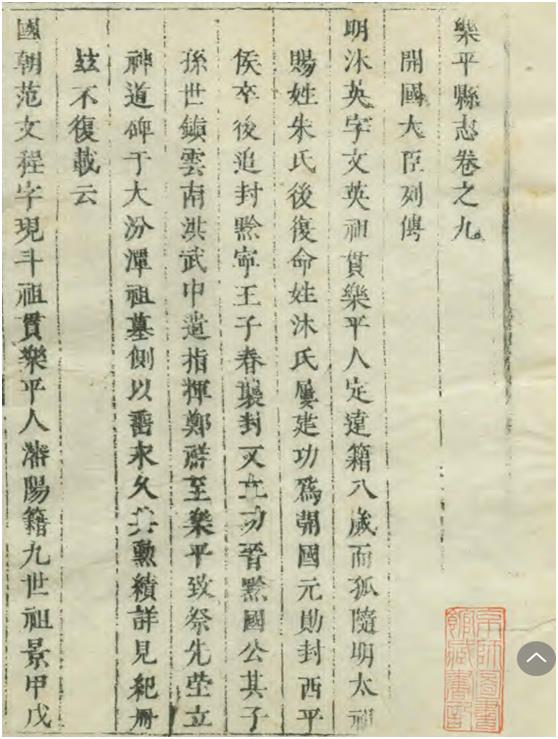 樂平縣志卷之九
開國大臣列傳
明沐英字文英祖貫樂平人定遠籍八歲而孤隨明太祖
賜姓朱氏後復命姓沐氏屢建功爲開國元勛封西平
侯卒後追封黔寧王子春襲封又立功晉黔國公其子
孫世鎮雲南洪武中遣指揮鄭祥至樂平致祭先塋立
神道碑于大汾潭祖墓側以垂永久其勲績詳見紀冊
兹不復載云
國朝范文程字現斗祖貫樂平人瀋陽籍九世祖景甲戊
京師圖書
館藏書記